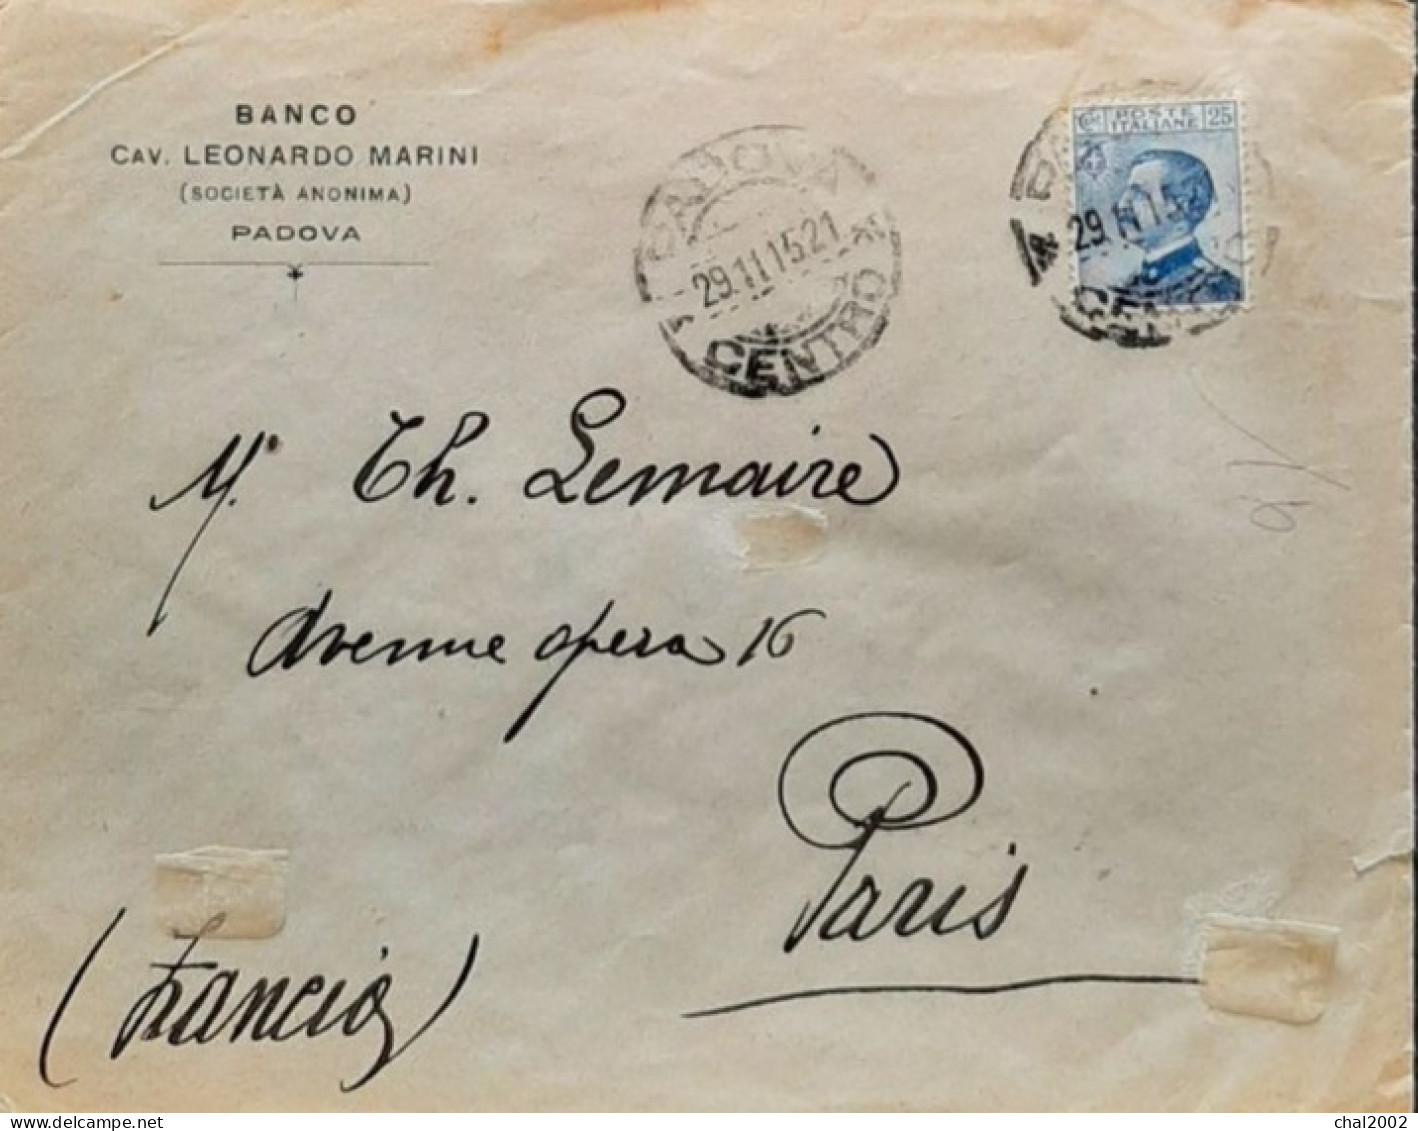 BANCO
CAV. LEONARDO MARINI
(SOCIETÀ ANONIMA)
PADOVA
PADOVA
29.11.15.21
CENTRO
Cmi POSTE ITALIANE 25
29.11.15.21
CENTRO
Mr. Th. Lemaire
Avenue opera 16
Paris
(Francia)
delcampe.net
chal2002